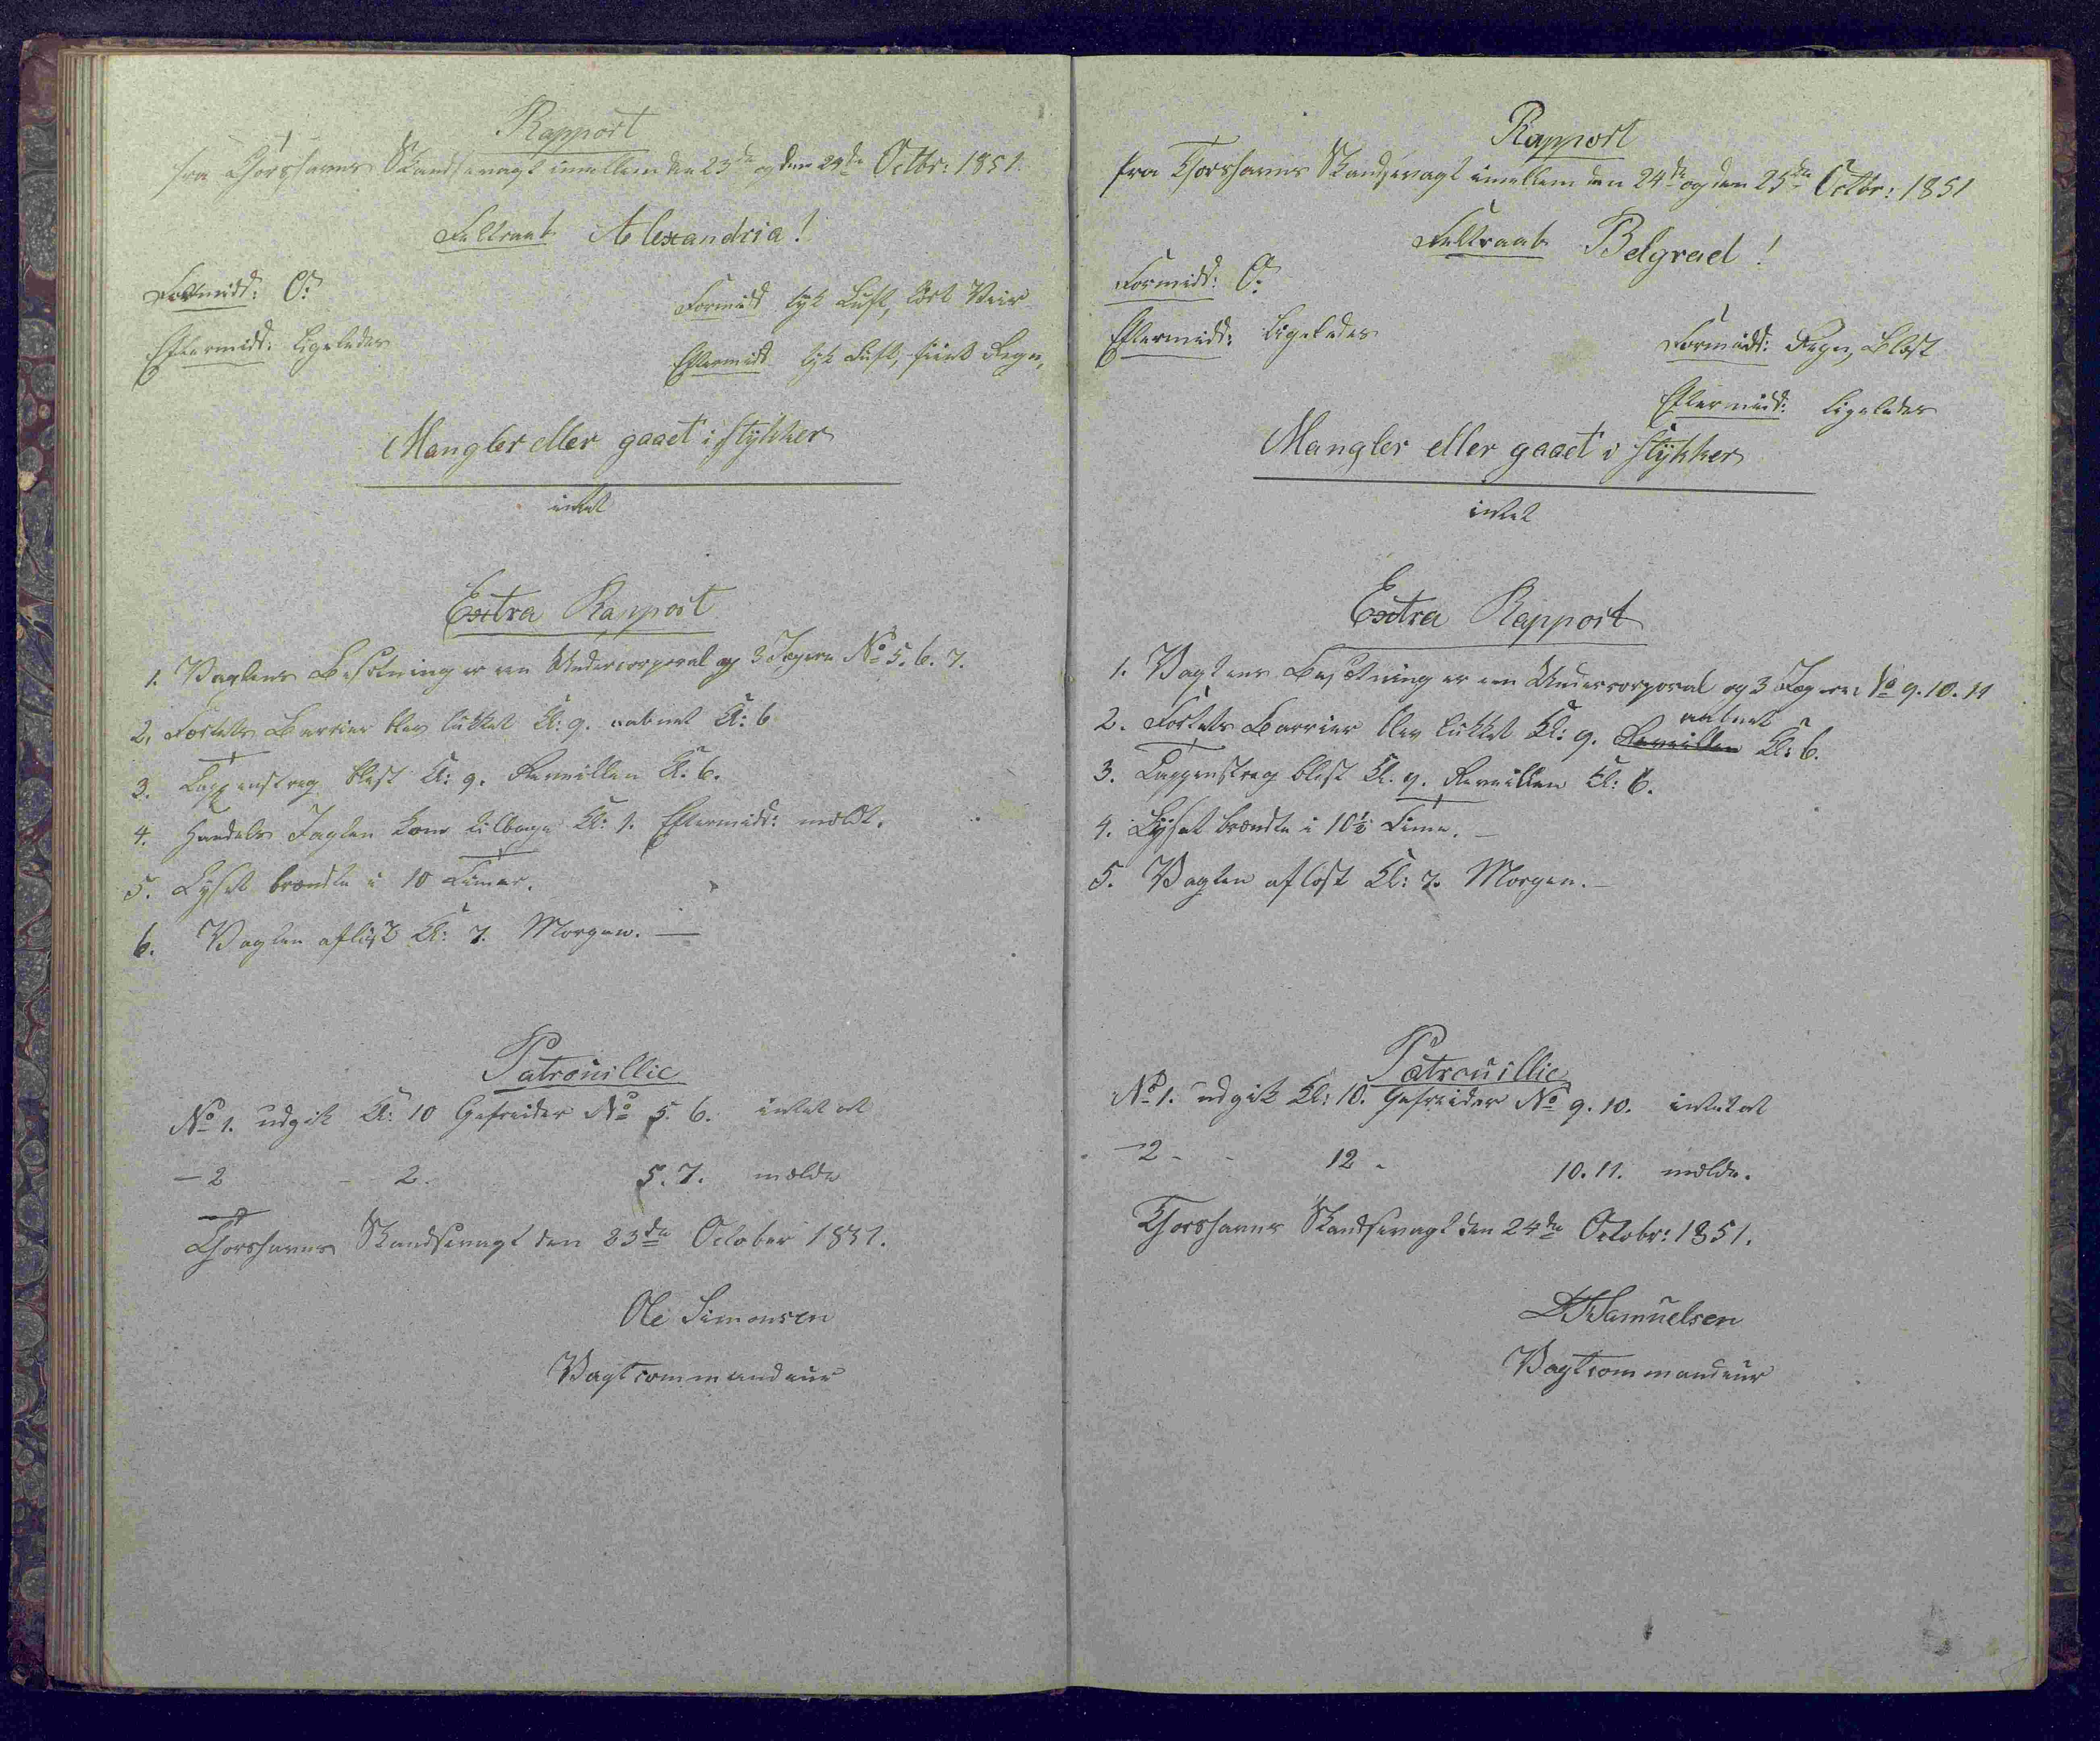 Rapport
fra Thorshavns Skandsevagt imellem den 23de og den 24de Octbr: 1851.
Feltraab Alexandria!
Formidd: O:
Formidd tyk Luft, tört Veir
Eftermidd: ligeledes
Eftermidd tyk Luft, fiint Regn,
Mangler eller gaaet i stykker
intet
Extra Rapport
1. Vagtens Besætning er een Undercorporal og 3 Jægere No 5. 6. 7.
2. Fortets Barrier blev lukket Kl: 9. aabnet Kl: 6
3. Tappenstreg blæst Kl: 9. Reveillen Kl: 6.
4. Handels Jagten kom tilbage Kl: 1. Eftermidd: meldt.
5. Lyset brændte i 10 Timer.
6. Vagten aflöst Kl: 7. Morgen. —
Patrouillie
No 1. udgik Kl: 10 Gefreider No 5. 6. intet at
— 2 - 2. 5. 7. melde
Thorshavns Skandsevagt den 23de October 1851.
Ole Simonsen
Vagtcommandeur
Rapport
fra Thorshavns Skandsevagt imellem den 24de og den 25de Octbr: 1851
Feltraab Belgrad!
Formidd: O:
Eftermidd: ligeledes
Formidd: Regn, Blæst
Eftermidd: ligeledes
Mangler eller gaaet i stykker
intet
Extra Rapport
1. Vagtens Besætning er een Undercorporal og 3 Jægere No 9. 10. 11
2. Fortets Barrier blev lukket Kl: 9. Reveillen aabnet Kl: 6.
3. Tappenstreg blæst Kl. 9. Reveillen Kl: 6.
4. Lyset brændte i 10½ Time. —
5. Vagten aflöst Kl: 7. Morgen. —
Patrouillie
No 1. udgik Kl: 10. Gefreider No 9. 10. intet at
— 2 - - 12 - 10. 11. melde.
Thorshavns Skandsevagt den 24de Octobr: 1851.
Samuelsen
Vagtcommandeur